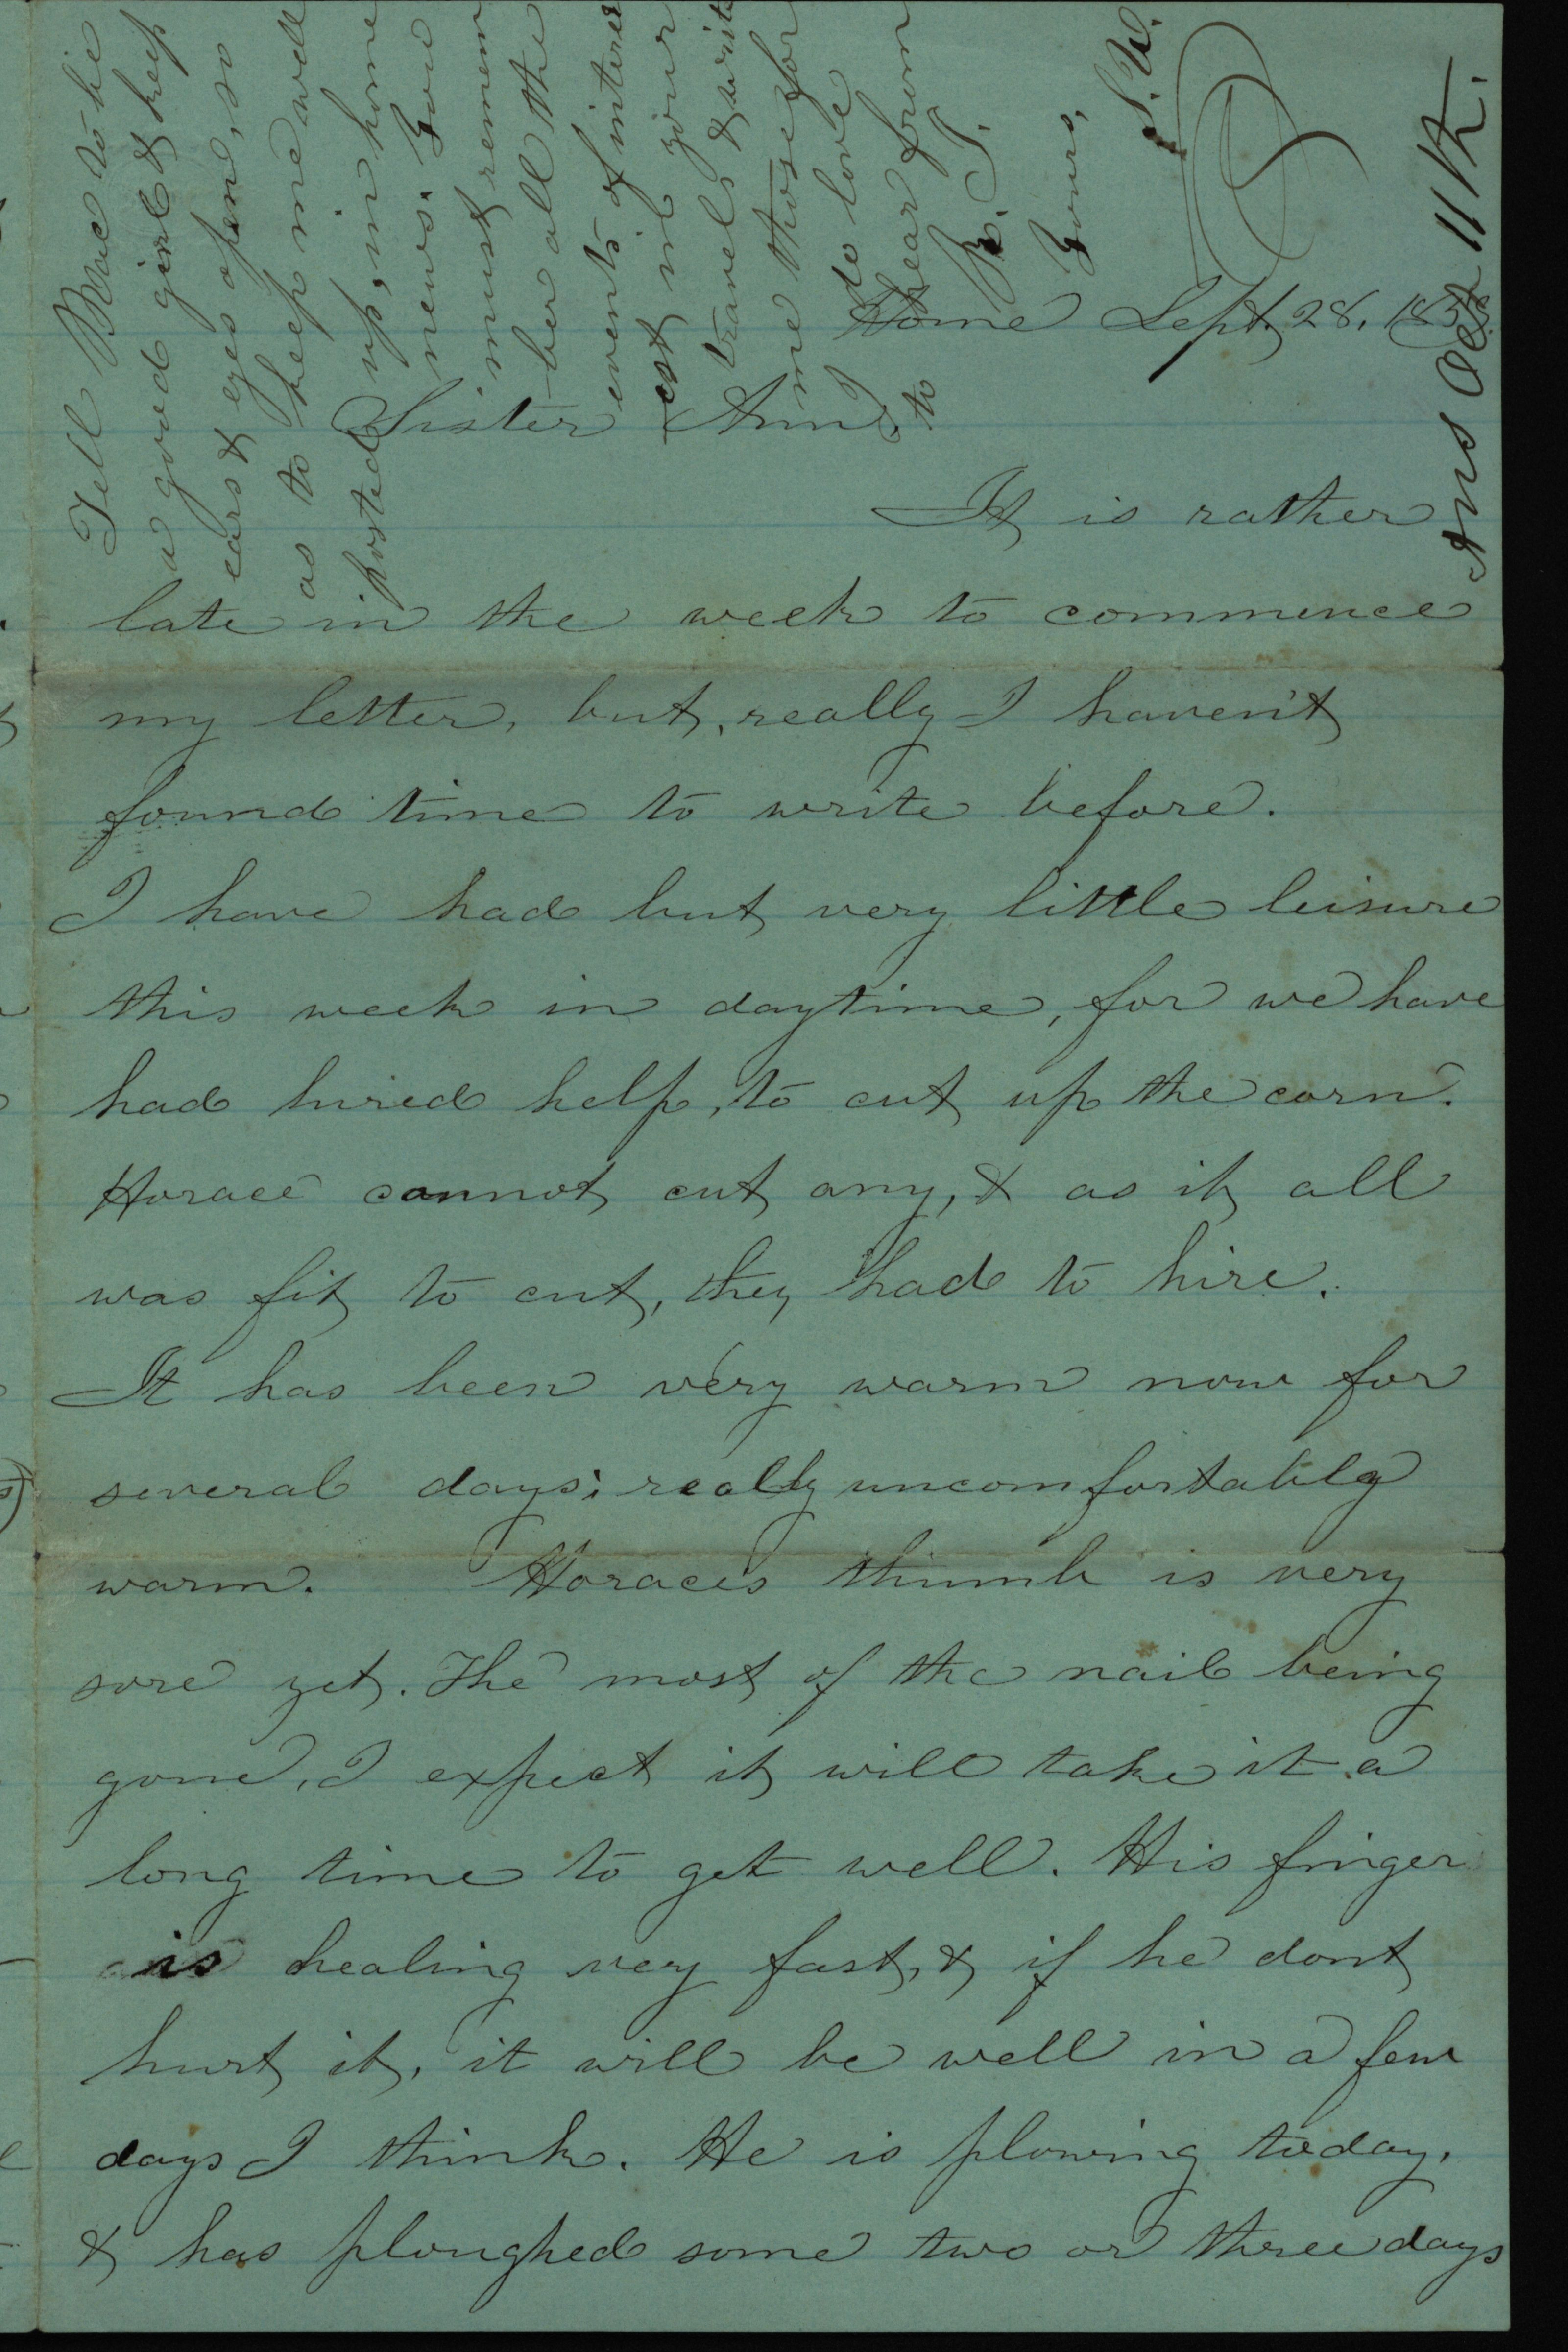 Home Sept. 28. 185
Sister Ann,
It is rather
late in the week to commence
my letter, but, really I haven't
found time to write before.
I have had but very little leisure
this week in daytime, for we have
had hired help, to cut up the corn.
Horace cannot cut any, & as it all
was fit to cut, they had to hire.
It has been very warm now for
several days; really uncomfortably
warm. Horaces thumb is very
sore yet. The most of the nail being
gone, I expect it will take it a
long time to get well. His finger
is healing very fast, & if he dont
hurt it, it will be well in a few
days I think. He is plowing today,
& has ploughed some two or three days
Tell Mac to be
a good girl & keep
ears & eyes open, so
as to keep me well
posted up, in home
news. You
must remem
ber all the
events of inter
est in your
travels & write
me those for
to love
to hear from
R. I.
Yours,
S. W.
Ans Oct 11th.